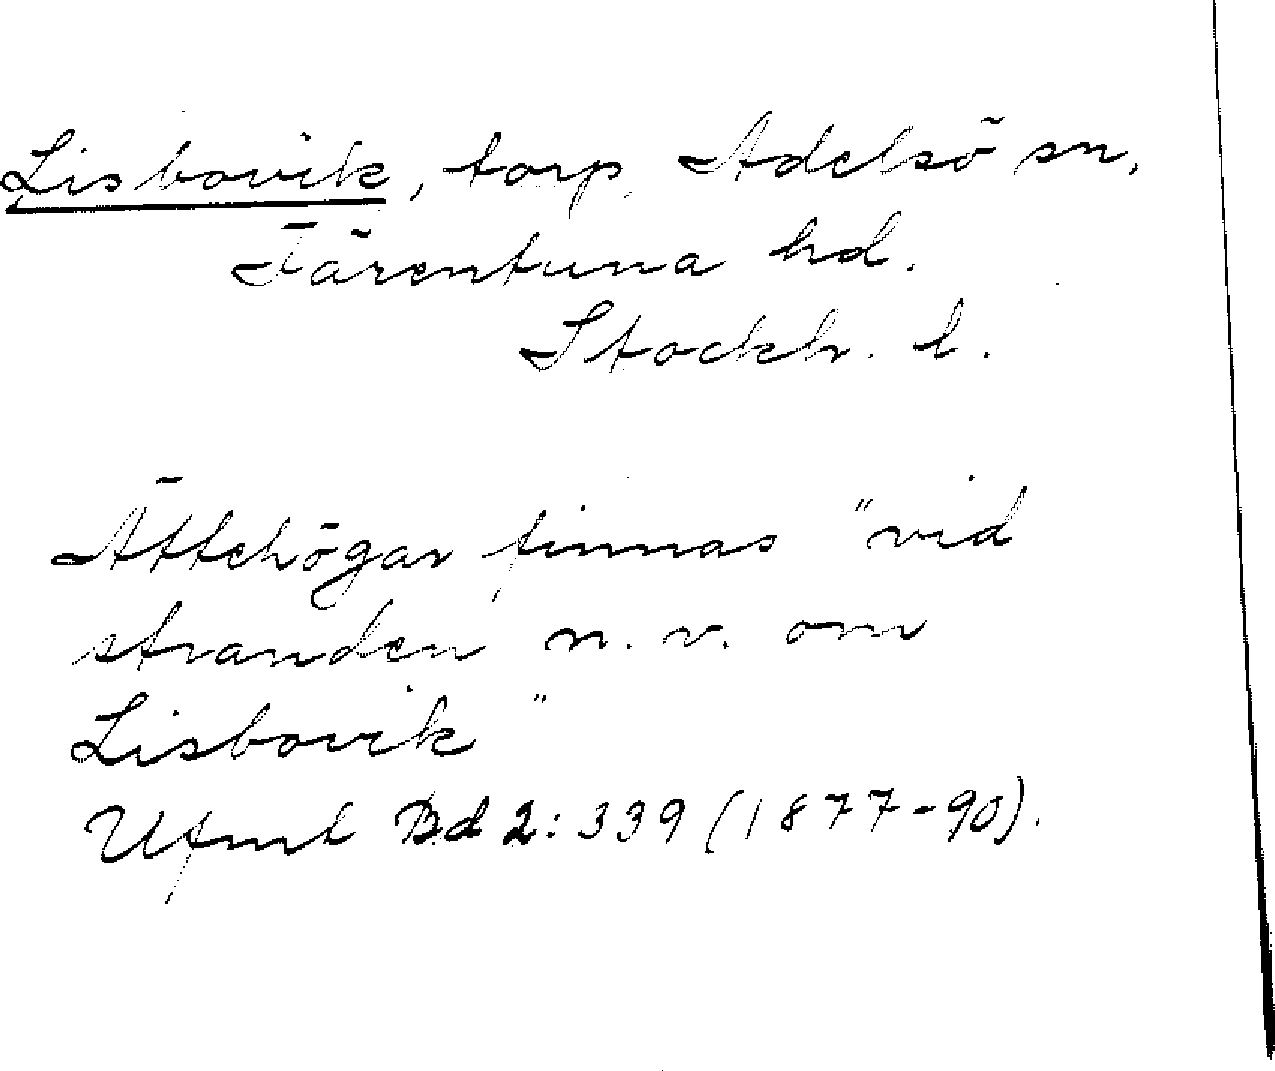 Lisbovik, torp, Adelsö sn,
Färentuna hd.
Stockh. l.
Ättehögar finnas "vid
stranden n. v. om
Lisbovik"
Ufmt Bd 2: 339 (1877-90).